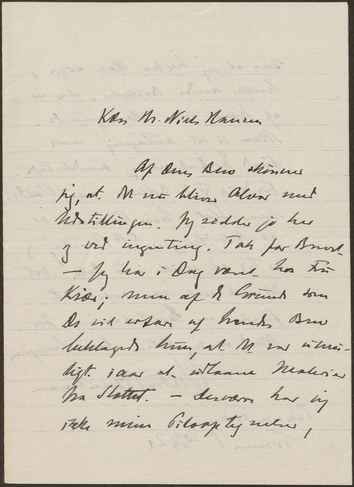 Kære Hr. Niels Hansen
Af Deres Brev skønner
jeg, at De nu bliver Alvor med
Udstillingen. Jeg sidder jo her
og ved ingenting. Tak for Brevet.
— Jeg har i Dag været hos Fru
Kiær; men af de Grunde som
De vil erfare af hendes Brev
beklagede hun, at det var umu-
ligt i aar at udlaane Malerier
fra Slottet. — Desværre har jeg
ikke mine